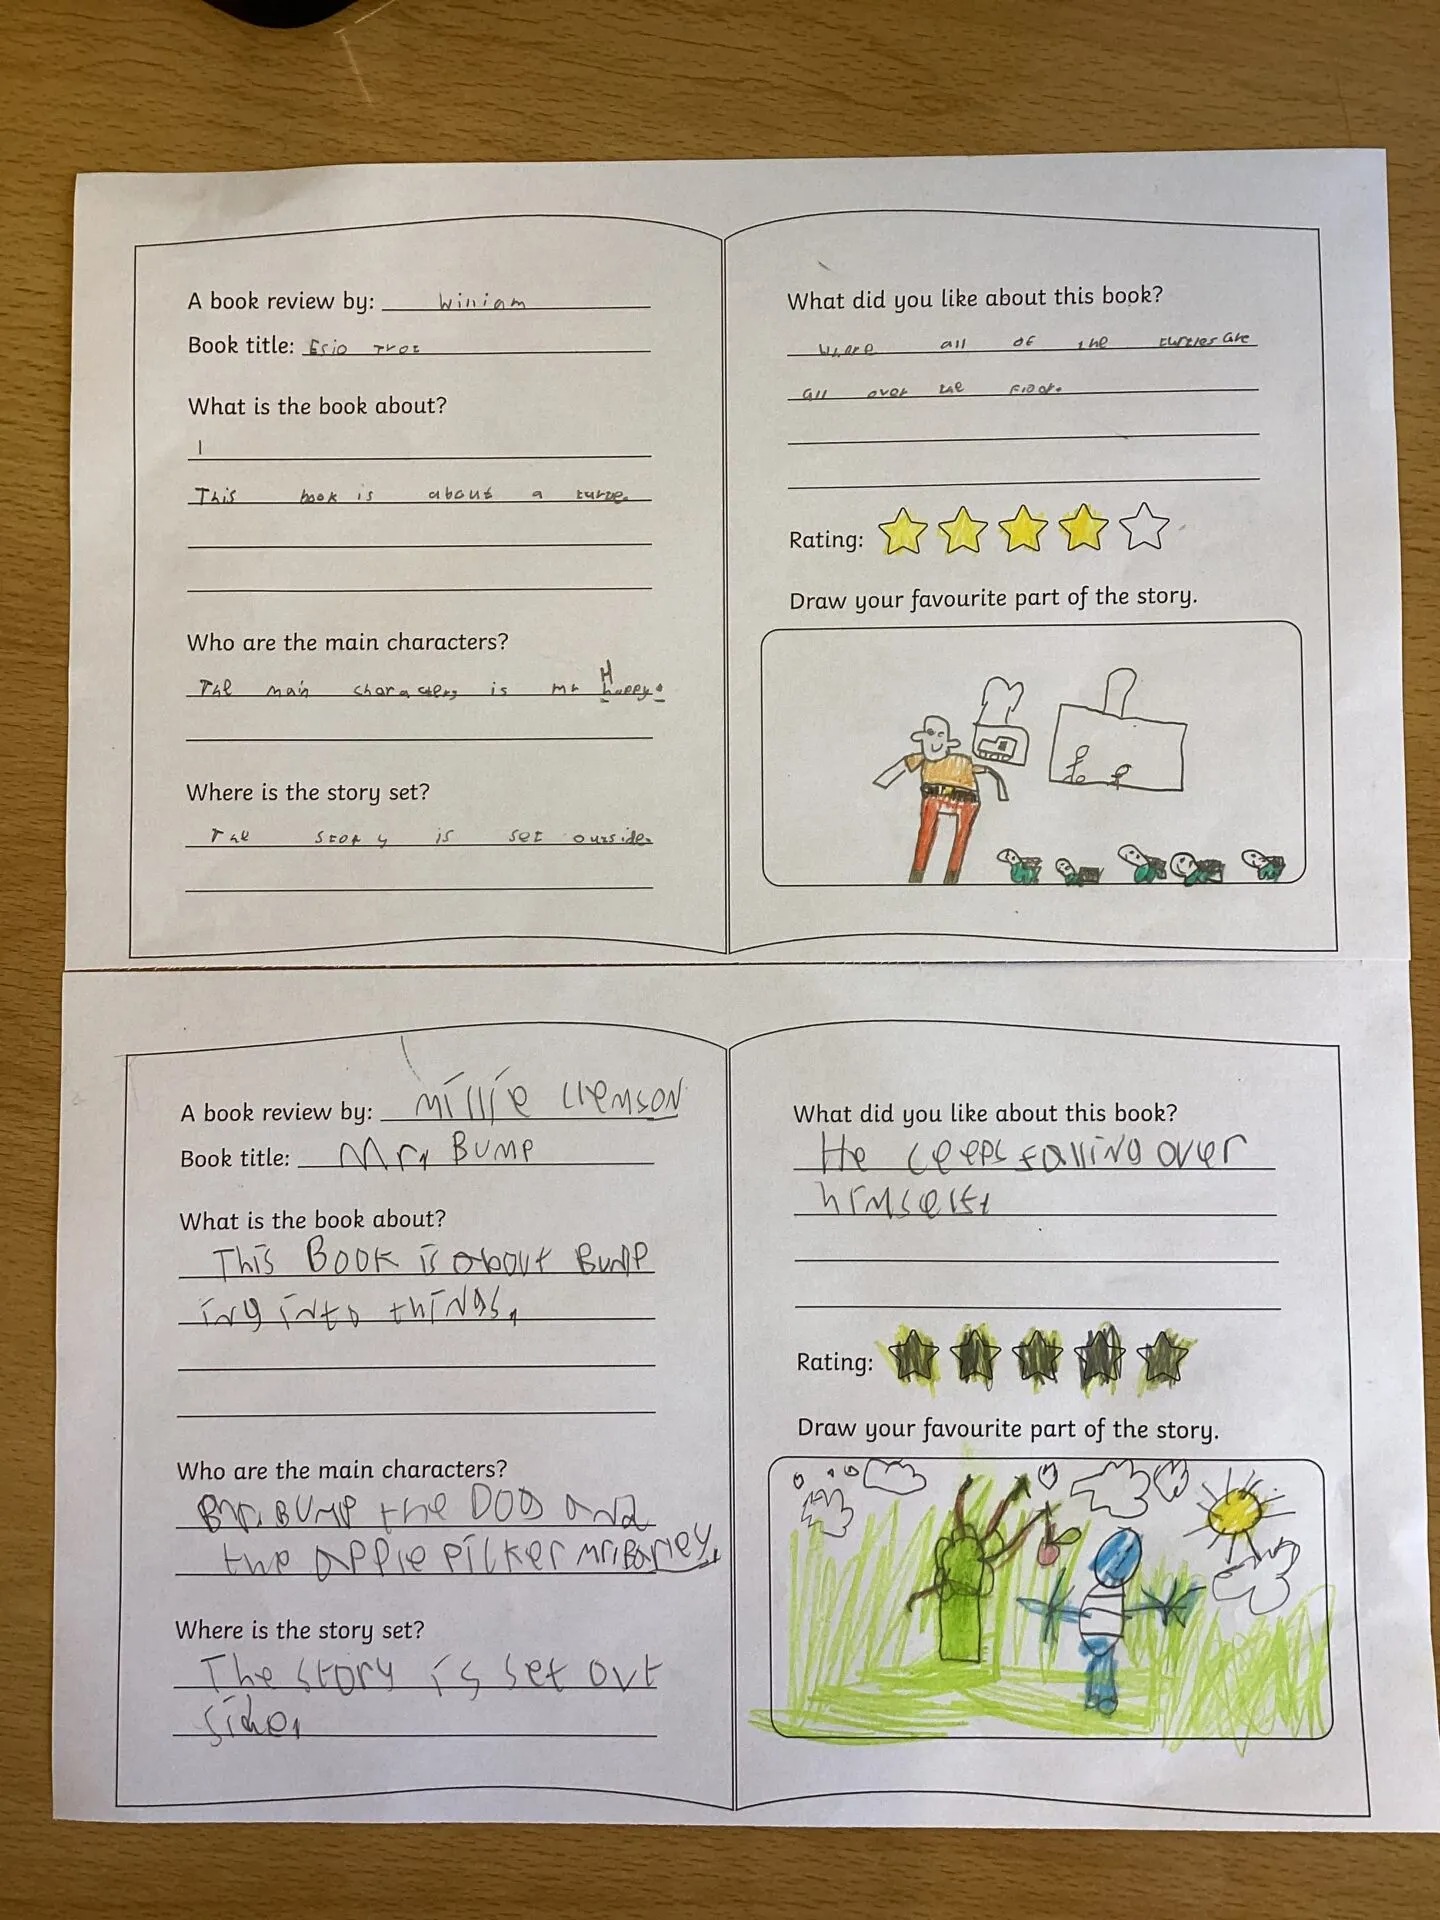 A book review by: William
Book title: Esio Trot
What is the book about?
This book is about a
Who are the main characters?
The main characters is mr Happy.
Where is the story set?
The story is set outside.
What did you like about this book?
Where all of the turtles are
all over the floor.
Rating:
Draw your favourite part of the story.
A book review by: Millie Clemson
Book title: Mr. Bump
What is the book about?
This Book is about Bump
ing into things.
Who are the main characters?
Mr. Bump the DOG and
the apple picker mr. Barley.
Where is the story set?
The story is set out
side.
What did you like about this book?
He ceeps falling over
himself.
Rating:
Draw your favourite part of the story.